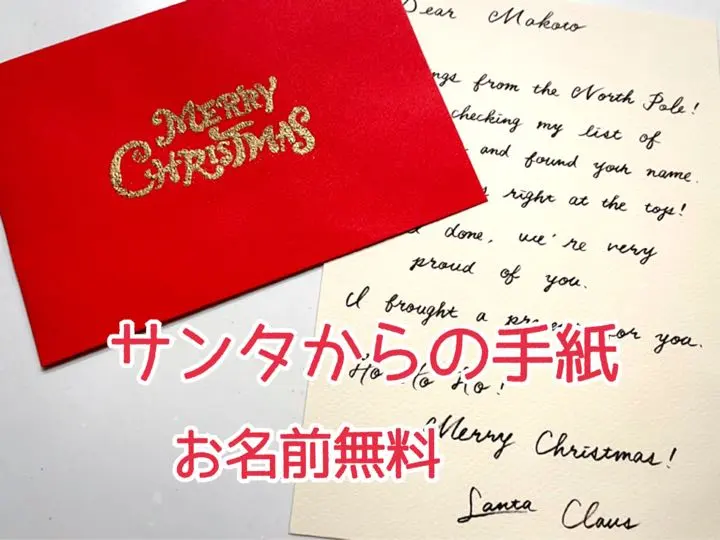 MERRY
CHRISTMAS
Dear Makoto
from the North Pole!
checking my list of
and found your name.
right at the top!
done, we're very
proud of you.
I brought a for you.
サンタからの手紙
Ho!
お名前無料
Merry Christmas!
Santa Claus